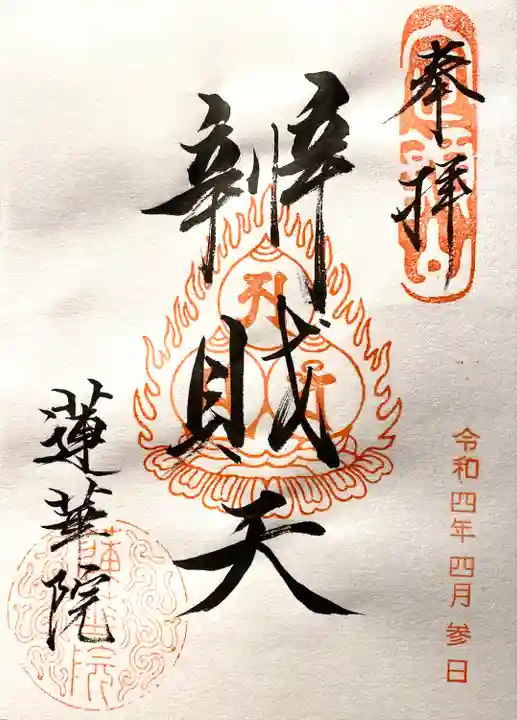 奉拝
辨財天
蓮華院
令和四年 四月 参日